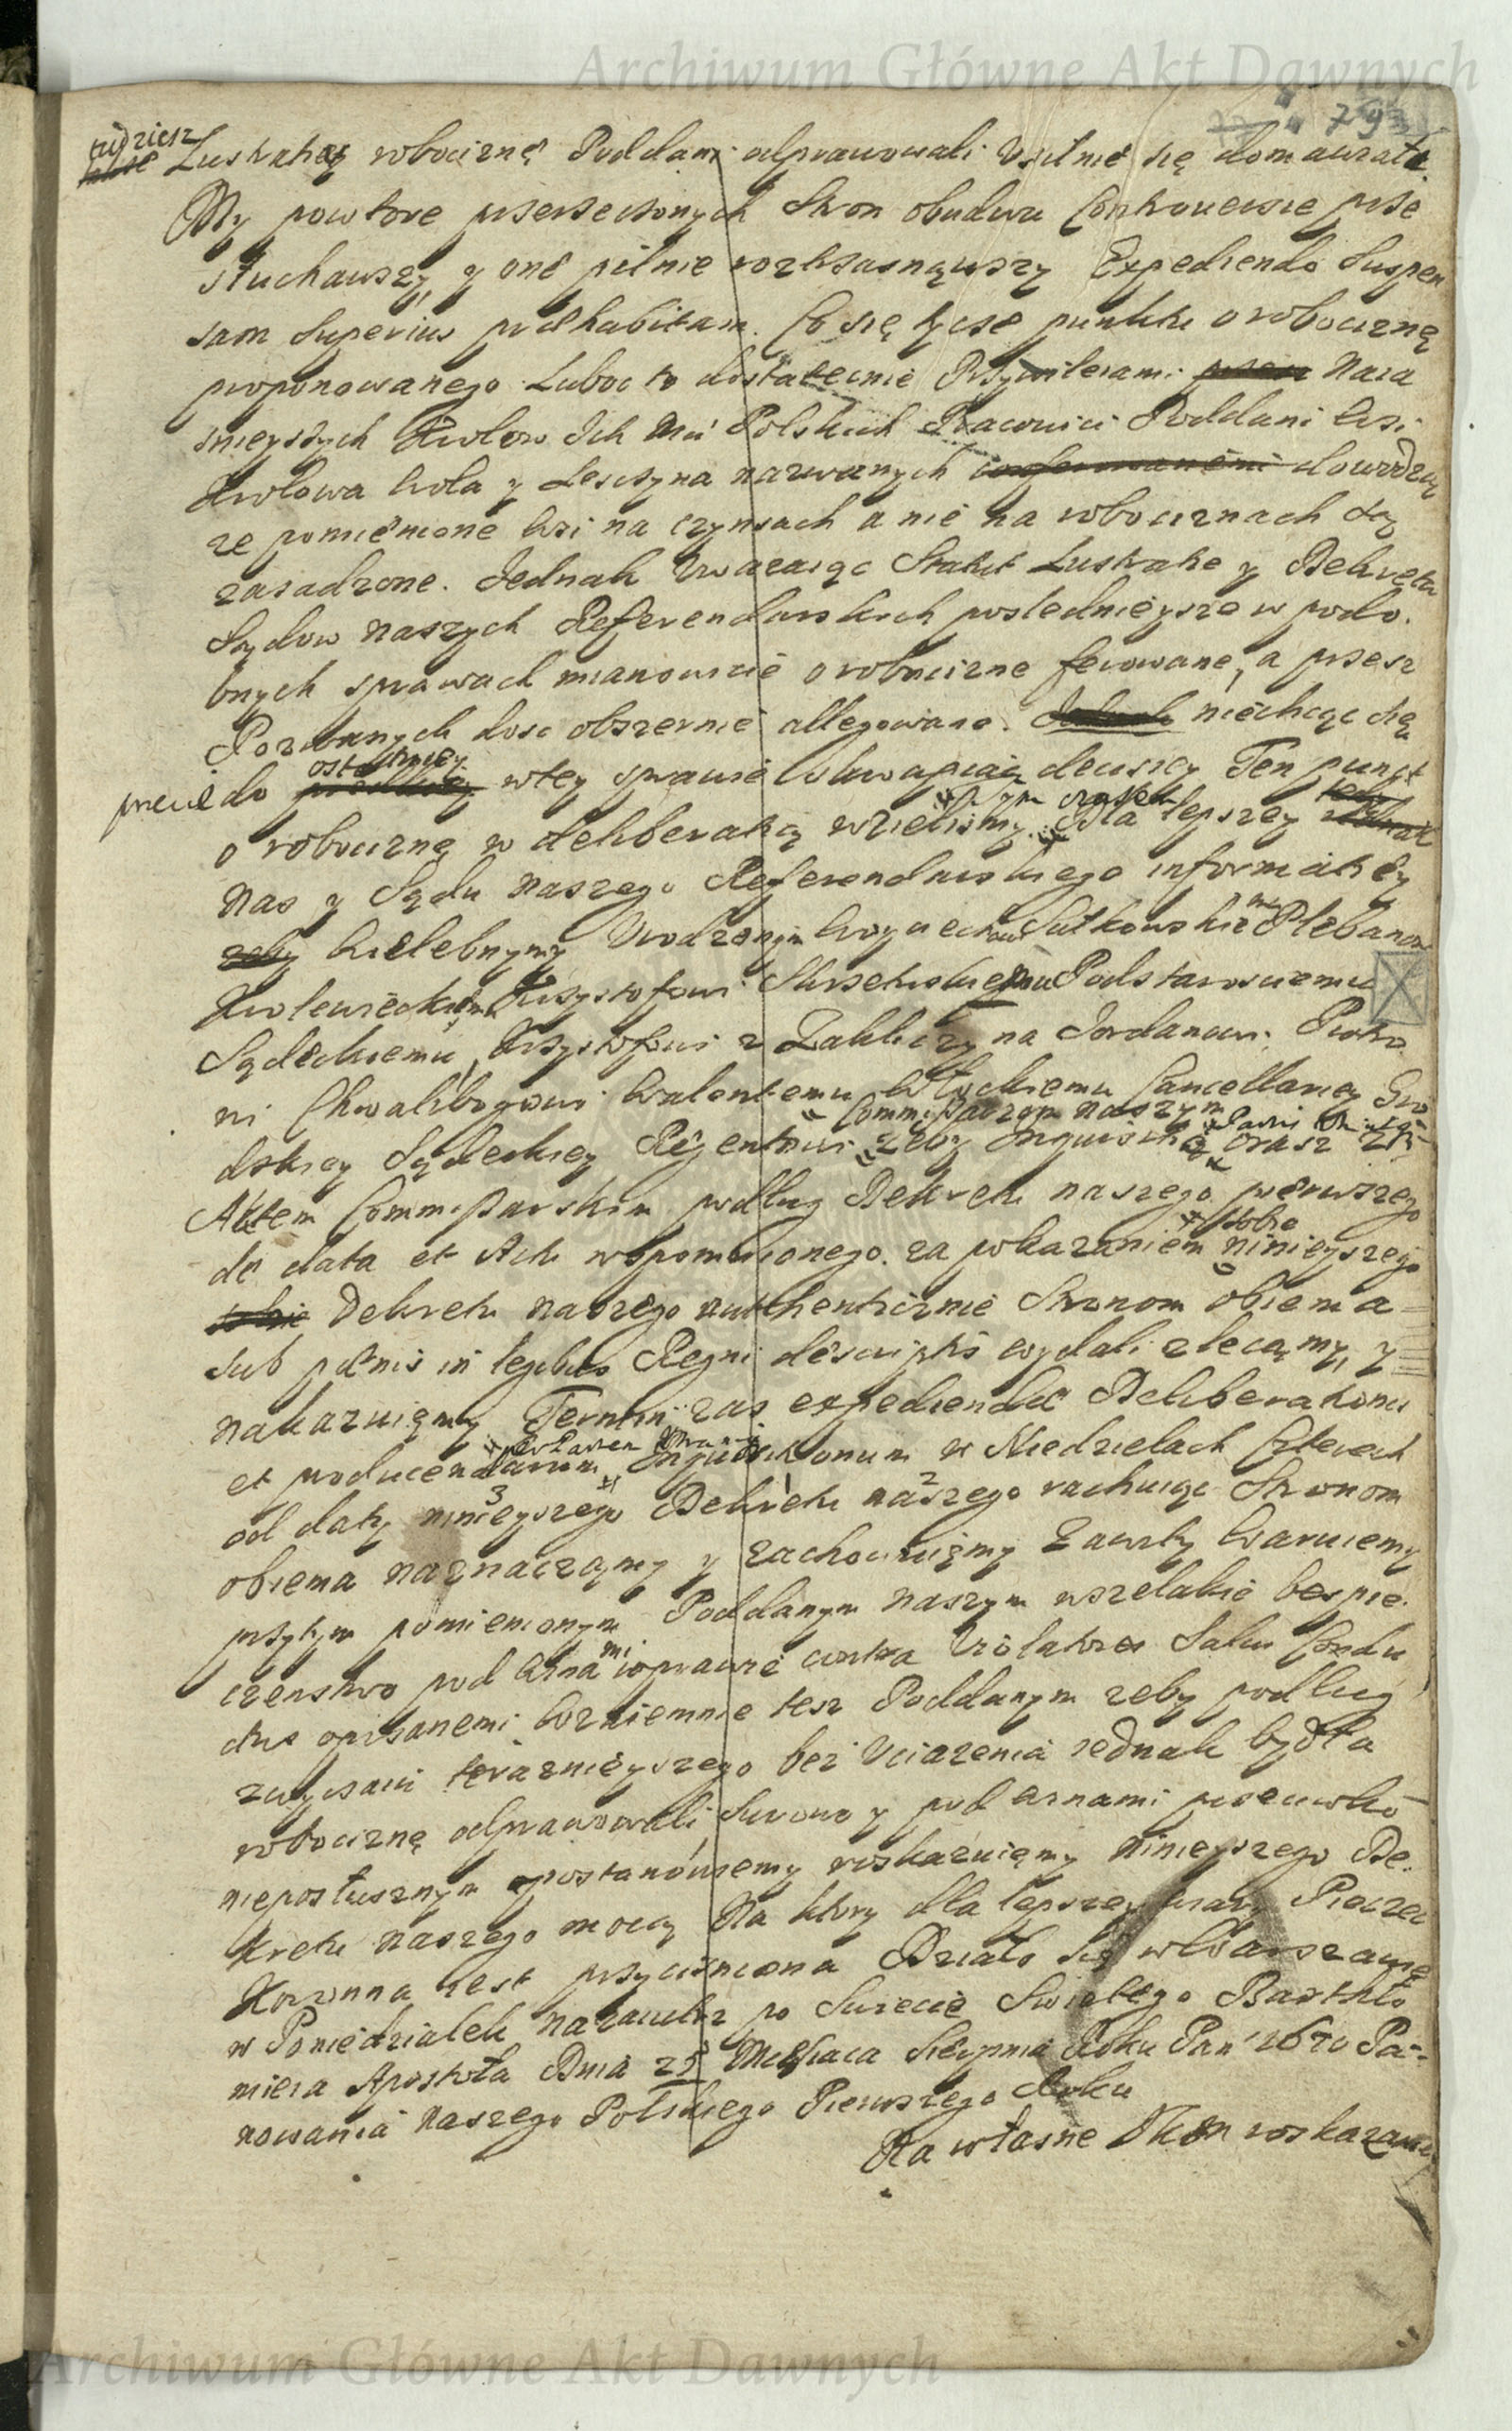 Archiwum Główne Akt Dawnych
793
tudziesz
Lustratią robociznę Poddani odprawowali Usilnie się domawiała.
My powtore przerzeczonych Stron obudwu Controuersie prze
słuchawszy, y one pilnie roztrząsnąwszy Expediendo Suspen
sam Superius præhabitam. Co się tycze punktu o robociznę
proponowanego Luboc to dostatecznie Przywileiami przez Naia
snieyszych Krolow Ich Mci Polskich Pracowici Poddani Wsi
Krolowa Wola y Lesczyna nazwanych dowodzą
ze pomienione Wsi na czynszach a nie na robociznach są
zasadzone. Jednak Uwazaiąc Statut Lustratie y Dekreta
Sądow naszych Referendarskich poslednieysze w podo.
bnych sprawach mianowicie o robocizne ferowane, a przesz
Pozwanych dosc obszernie allegowane. Jednak niechcąc się
ostatniey
precz do wtey sprawie skwapiać decisiey Ten punct
tym czasem tedy
o robociznę w deliberatią wzielismy. Dla lepszey
Nas y Sądu Naszego Referendarskiego informatiey
zeby Wielebnymy Urodzonym Woyciechowi Sutkowskiemu Plebanowi
Krolewieckiemu Krzysztofowi Strzeleckiemu Podstarosciemu
Sądeckiemu, Krzysztofowi z Zakliczyna Jordanowi Piotro
wi Chwalibogowi Walentemu Cancellariey Gro
Commissarzom naszym
dzkiey Sądeckiey Regentowi zeby Inquisitie orasz z
Aktem Commissarskim podług Dekretu naszego pierwszego
sobie
de data et Actu wspomnionego za pokazaniem ninieyszego
sobie Dekretu naszego authenticznie Stronom obiema
sub pœnis in legibus Regni descriptis wydali zlecamy, y
nakazuięmy Termin zas expediendæ Deliberationis
et producendarum Inquisitionum w Niedzielach Czterech
3 1 2
od daty ninieyszego Dekretu naszego rachuiąc Stronom
obiema naznaczamy y zachowuięmy Zawity Waruiemy
przytym pomienionym Poddanym naszym wszelakie bespie.
czenstwo pod winami wprawie contra Violatores Salui Condu
ctus opisanemi Wzaiemnie tesz Poddanym zeby podług
zwyczaiu terazneyszego bez Uciązenia iednak bydła
robociznę odprawowali, Surowo y pod winami przeciwko
nieposłusznym postanowionemy roskazuięmy ninieyszego De.
kretu naszego mocą Na ktory dla lepszey wiary Pieczęc
Koronna iest przycisniona Działo się w Warszawie
w Poniedziałek nazaiutrz po Swiecie Swiętego Barthło
mieia Apostoła Dnia 25 Miesiaca Sierpnia Roku Pan 1670 Pa-
nowania Naszego Polskiego Pierwszego Roku
Na własne JKM roskazanie
Archiwum Główne Akt Dawnych